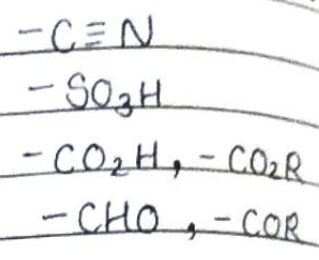 -C≡N
-SO₃H
-CO₂H, -CO₂R
-CHO, -COR